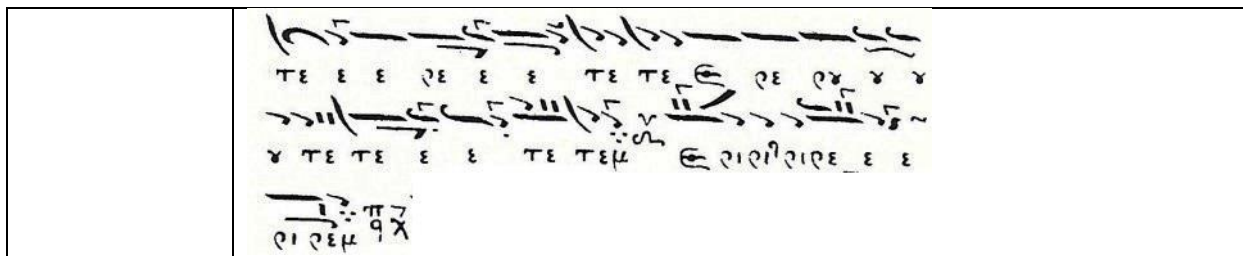 τε ε ε ρε ε ε τε τε ρε ρȣ ȣ ȣ
ȣ τε τε ε ε τε τεμ ριριριρε_ ε ε
ρι ρεμ